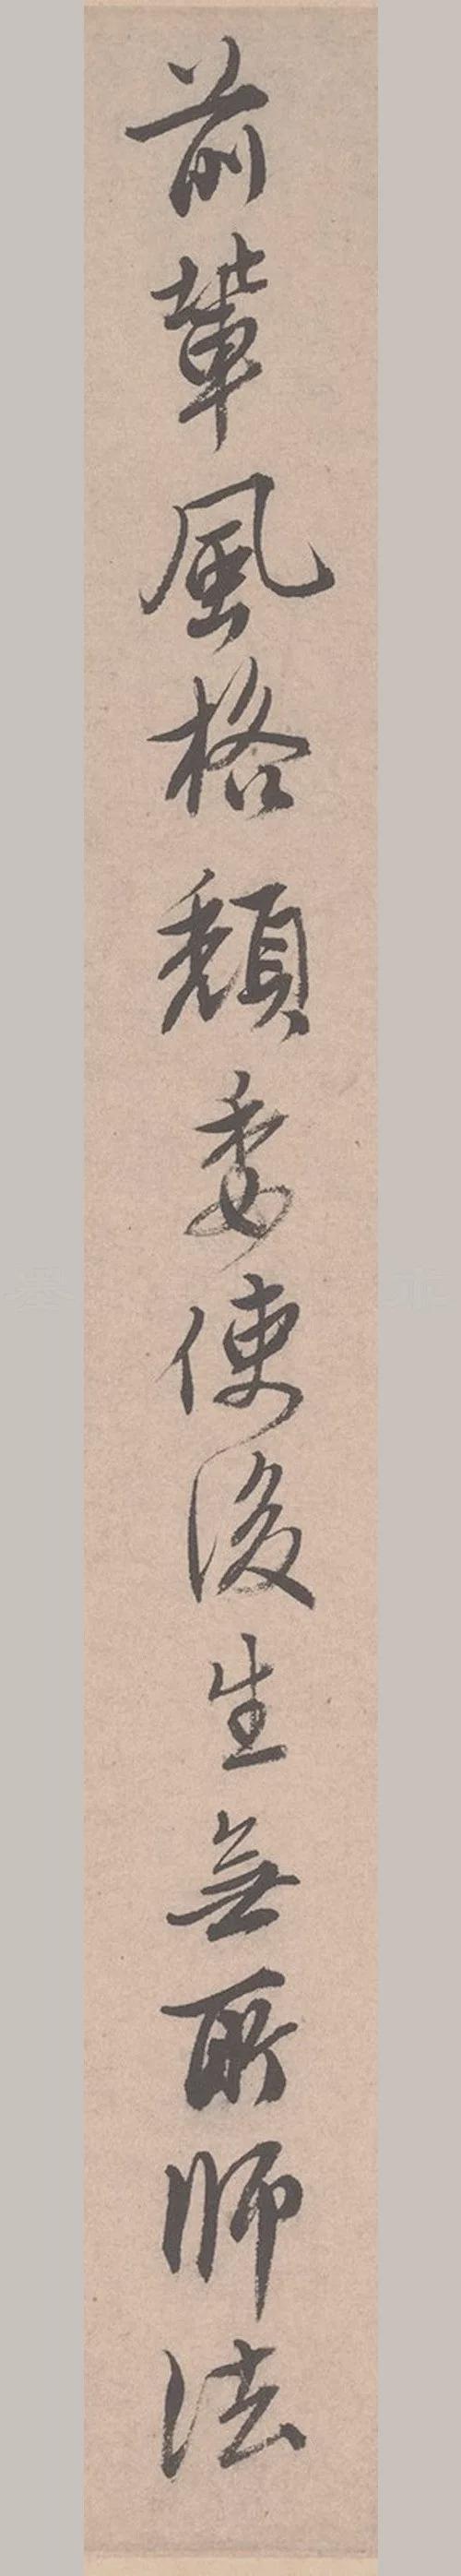 前輩風格頽委使後生無所師法